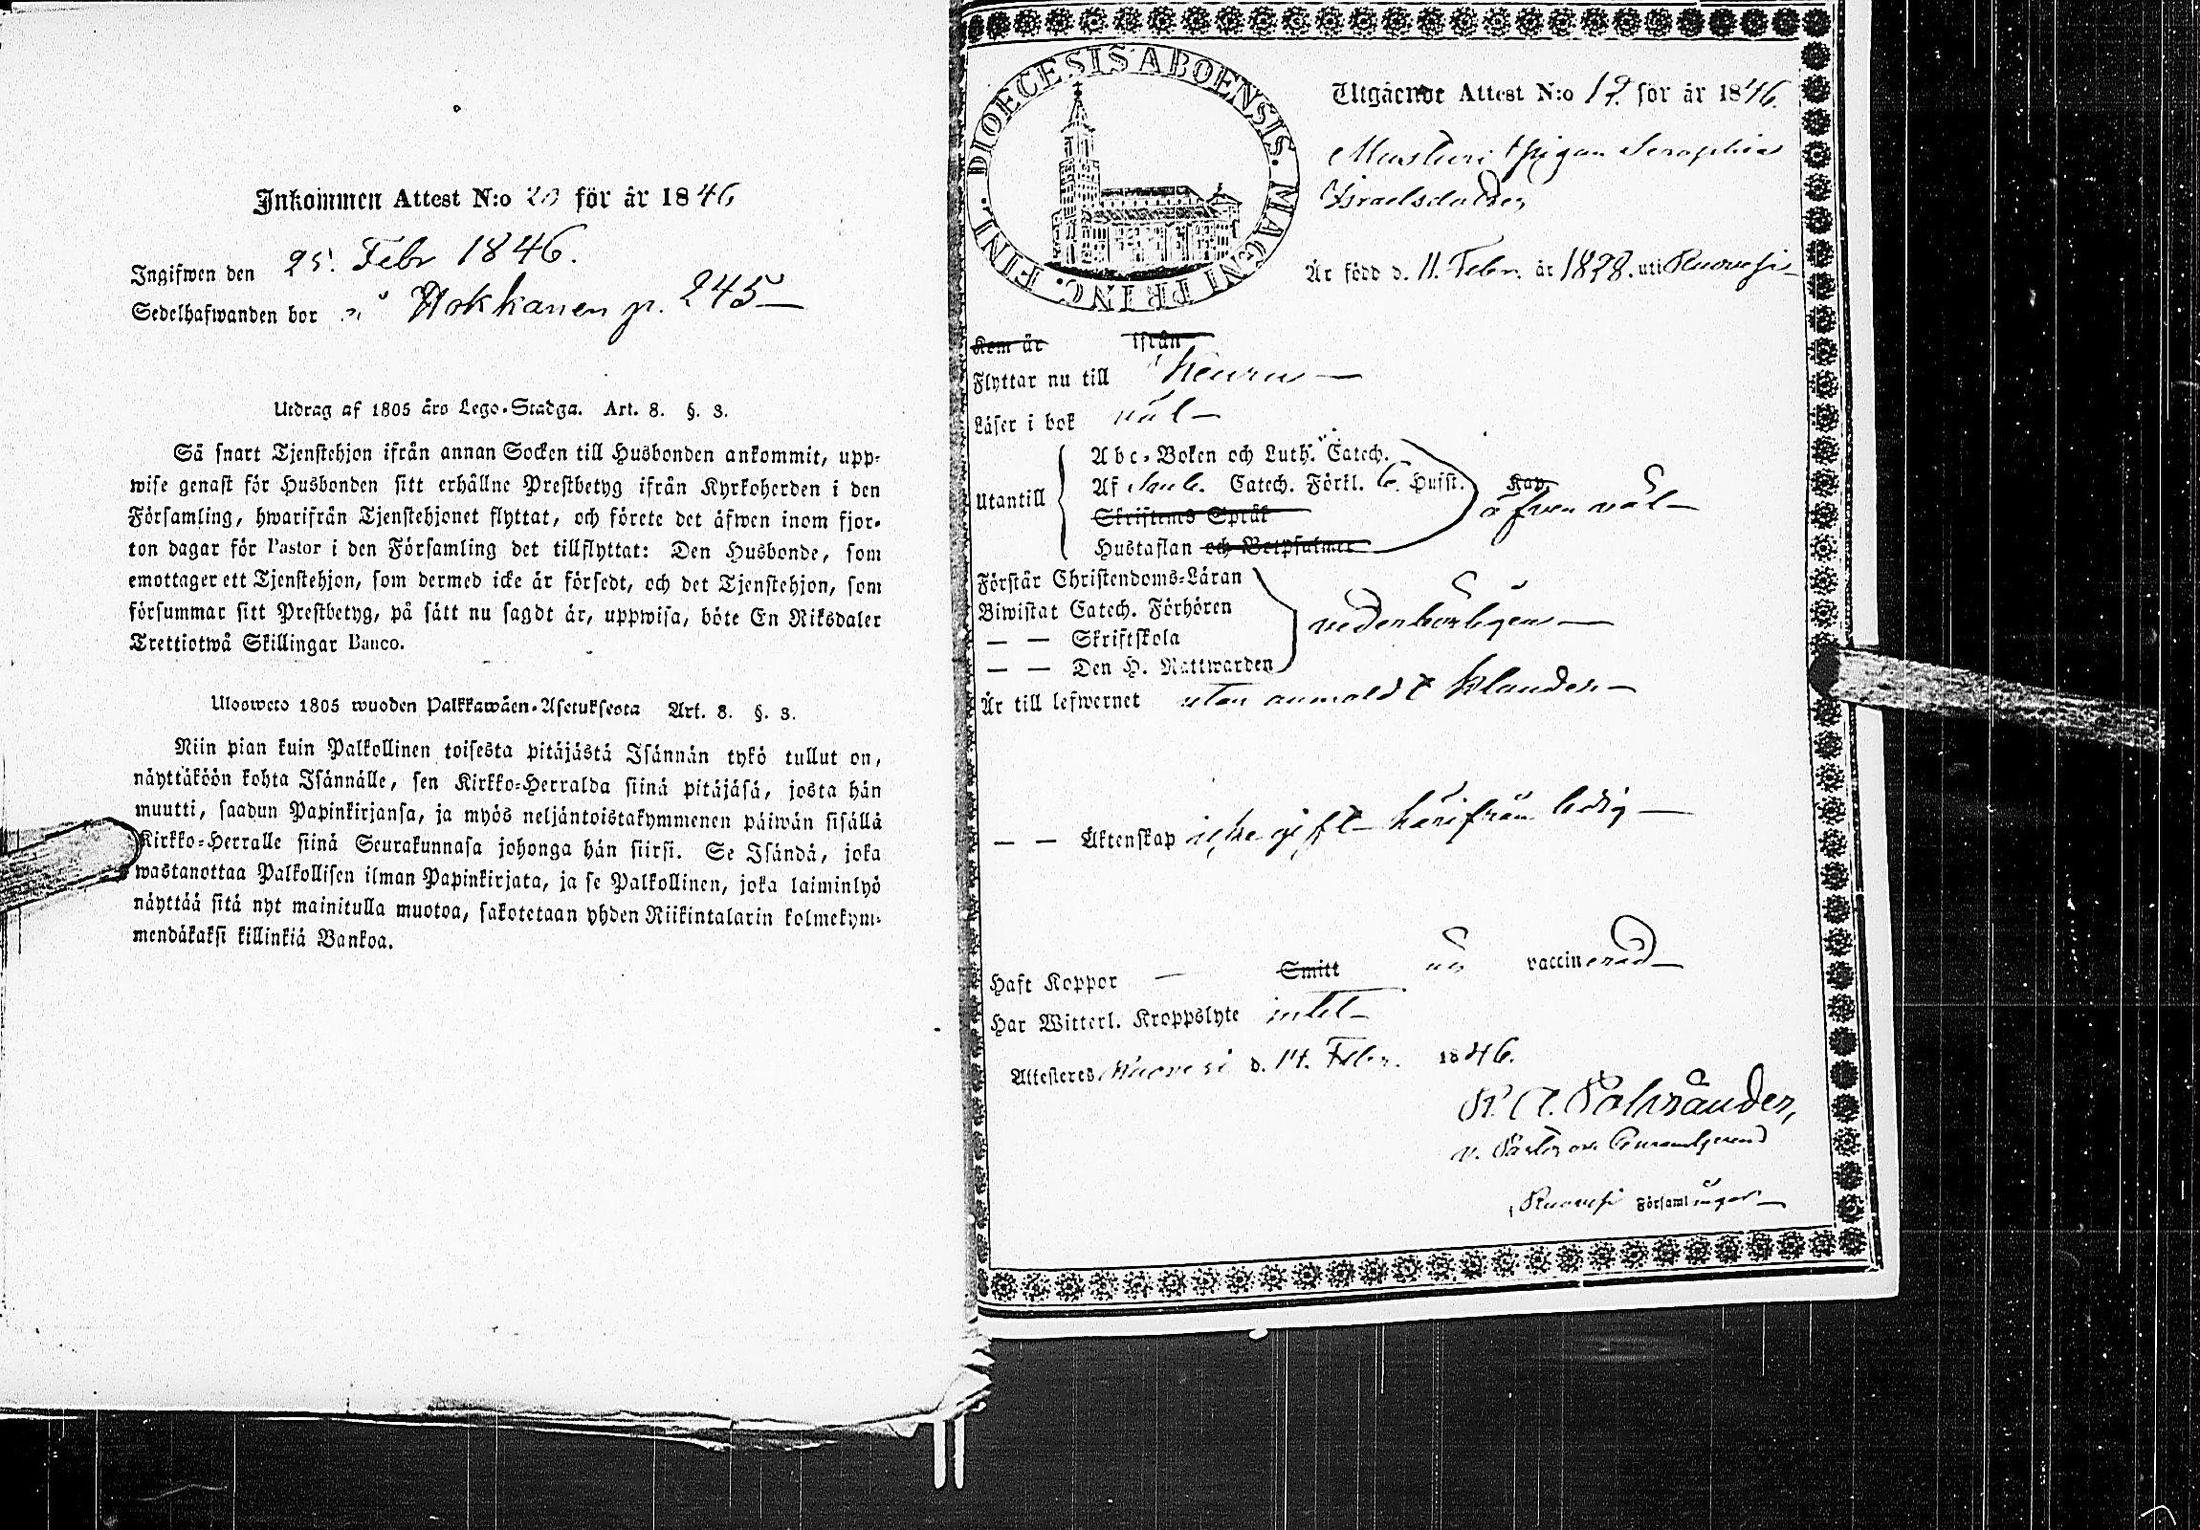 Inkommen Attest N:o 20 för år 1846
Ingifwen den 25. Febr 1846.
Sedelhafwanden bor på Hokkanen p. 245
Utdrag af 1805 års Lego-Stadga. Art. 8. §. 3.
Så snart Tjenstehjon ifrån annan Socken till Husbonden ankommit, upp-
wise genast för Husbonden sitt erhållne Prestbetyg ifrån Kyrkoherden i den
Församling, hwarifrån Tjenstehjonet flyttat, och förete det äfwen inom fjor-
ton dagar för Pastor i den Församling det tillflyttat: Den Husbonde, som
emottager ett Tjenstehjon, som dermed icke är försedt, och det Tjenstehjon, som
försummar sitt Prestbetyg, på sätt nu sagdt är, uppwisa, böte En Riksdaler
Trettiotwå Skillingar Banco.
Ulosweto 1805 wuoden Palkkawäen-Asetuksesta Art. 8. §. 3.
Niin pian kuin Palkollinen toisesta pitäjästä Isännän tykö tullut on,
näyttäköön kohta Isännälle, sen Kirkko-Herralda siinä pitäjäsä, josta hän
muutti, saadun Papinkirjansa, ja myös neljäntoistakymmenen päiwän sisällä
Kirkko-Herralle siinä Seurakunnasa johonga hän siirsi. Se Isändä, joka
wastanottaa Palkollisen ilman Papinkirjata, ja se Palkollinen, joka laiminlyö
näyttää sitä nyt mainitulla muotoa, sakotetaan yhden Riikintalarin kolmekym-
mendäkaksi killinkiä Bankoa.
DIOECESIS ABOENSIS. MAGNI PRINC. FINL.
Utgående Attest N:o 17. för år 1846.
Pigan Seraphia
Israelsdotter,
Är född d. 11. Febr. år 1828. uti Ruovesi
Kom är ifrån
Flyttar nu till Keuru
Läser i bok väl
Utantill
Abc-Boken och Luth. Catech.
Af Catech. Förkl. 6. Hufst.
Skriftens Språk
Hustaflan och Botpsalmer
äfven väl
Förstår Christendoms-Läran
Biwistat Catech. Förhören
— — Skriftskola
— — Den H. Nattwarden
vederbörligen
Är till lefwernet utan anmäldt klander
— — Äktenskap icke gift härifrån ledig
Haft Koppor — Smitt är vaccinerad
Har Witterl. Kroppslyte intet
Attesteras Ruovesi d. 14. Febr. 1846.
v. Pastor
Ruovesi Församlingar